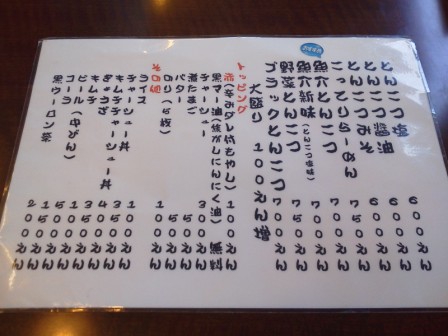 とんこつ塩 600えん
とんこつ醤油 600えん
とんこつみそ 600えん
こってりらーめん えん
魚介とんこつ えん
魚介新味 えん
野菜とんこつ えん
ブラックとんこつ 700えん
大盛り 100えん増
トッピング
(辛みダレ付もやし) 100えん
黒マー油(焦がしにんにく油) 無料
チャーシュー 300えん
煮たまご えん
バター えん
のり(5枚) 100えん
その他
ライス 100えん
チャーシュー丼 えん
キムチチャーシュー丼 えん
ぎょうざ えん
キムチ えん
ビール(中びん) えん
コーラ えん
黒ウーロン茶 えん